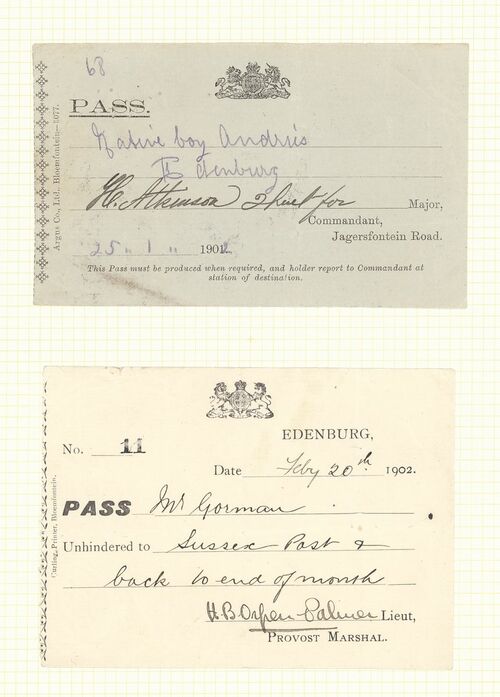 68
PASS.
Native boy Andries
To Edenburg
H. Atkinson Lieut for Major,
Commandant,
Jagersfontein Road.
25 " 1 " 1902
This Pass must be produced when required, and holder report to Commandant at
station of destination.
Argus Co., Ltd., Bloemfontein—1077.
EDENBURG,
No. 11
Date Feby 20th 1902.
PASS Mr Gorman
Unhindered to Sussex Post &
back to end of month
H.B. Orpen-Palmer Lieut,
PROVOST MARSHAL.
Curling, Printer, Bloemfontein.